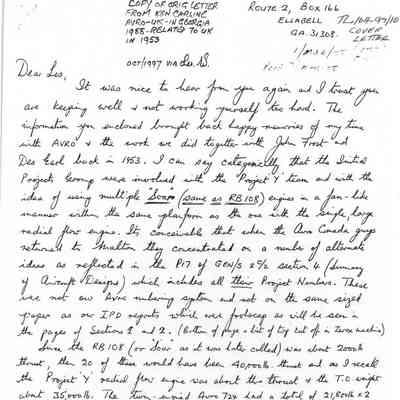 COPY OF ORIG LETTER
FROM KEN CARLINE
AVRO-UK-IN GEORGIA
1988-RELATED TO UK
IN 1953
ROUTE 2, BOX 166
ELLABELL
GA. 31308.
COVER
LETTER
OCT/1997 VIA
Dear Les,
It was nice to hear from you again and I trust you
are keeping well & not working yourself too hard. The
information you enclosed brought back happy memories of my time
with AVRO & the work we did together with John Frost and
Des Earl back in 1953. I can say categorically that the Initial
Projects Group were involved with the Project 'Y' team and with the
idea of using multiple 'Soar' (same as RB108) engines in a fan-like
manner within the same planform as the one with the single, large
radial flow engine. Its conceivable that when the Avro Canada guys
returned to Malton they concentrated on a number of alternate
ideas as reflected in the P17 of section 4. (Summary
of Aircraft Designs) which includes all their Project Numbers. These
are not our Avro numbering system and not on the same sized
paper as our IPD reports which were foolscap as will be seen in
the pages of Sections 1 and 2. (Bottom of page a bit of top cut off in Xerox machine)
Since the RB108 (or 'Soar' as it was later called) was about 2000lb
thrust, then 20 of these would have been 40,000lb thrust and as I recall
the Project 'Y' radial flow engine was about this thrust & the T.O weight
about 35,000lb. The twin-engined Avro 724 had a total of 21,500lb x 2